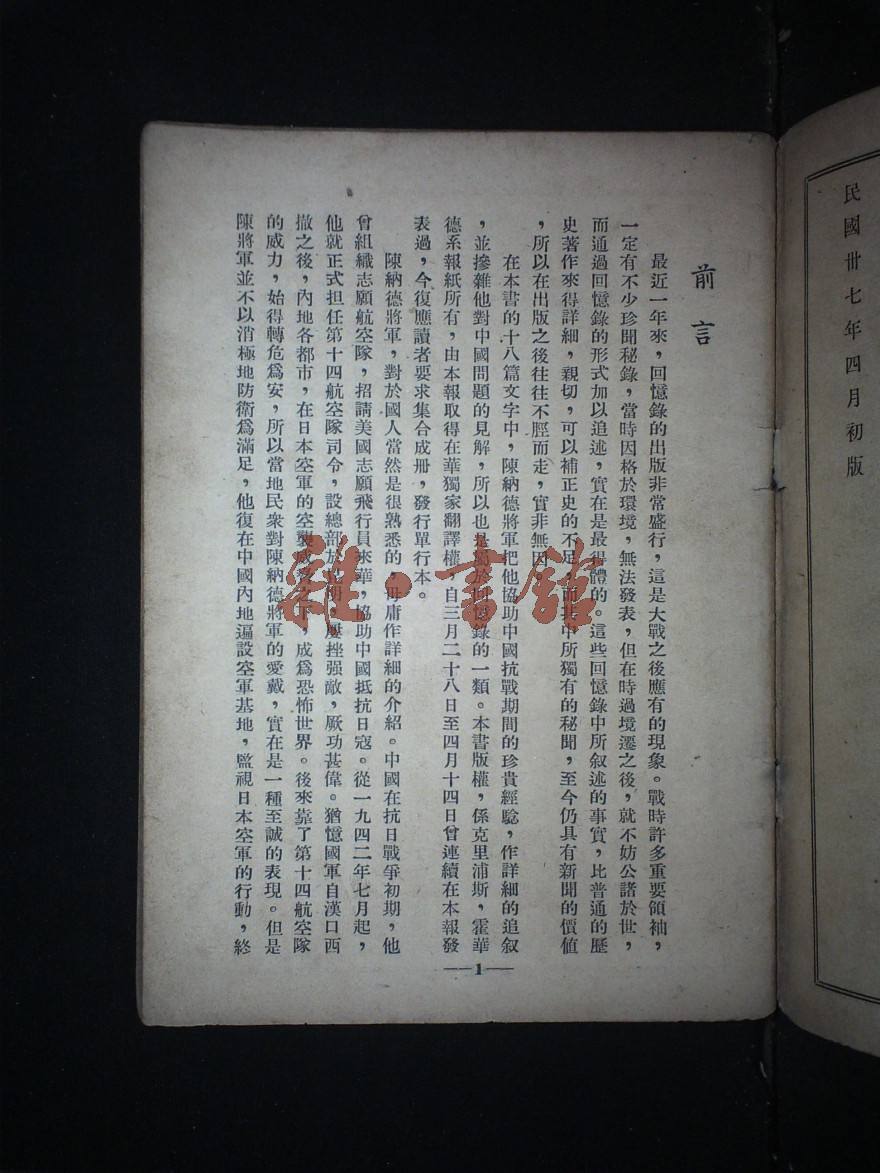 民國卅七年四月初版
前言
最近一年來，回憶錄的出版非常盛行，這是大戰之後應有的現象。戰時許多重要領袖，
一定有不少珍聞秘錄，當時因格於環境，無法發表，但在時過境遷之後，就不妨公諸於世，
而通過回憶錄的形式加以追述，實在是最得體的。這些回憶錄中所叙述的事實，比普通的歷
史著作來得詳細，親切，可以補正史的不足，而其中所獨有的秘聞，至今仍具有新聞的價値
，所以在出版之後往往不脛而走，實非無因。
在本書的十八篇文字中，陳納德將軍把他協助中國抗戰期間的珍貴經驗，作詳細的追叙
，並摻雜他對中國問題的見解，所以也是屬於回憶錄的一類。本書版權，係克里浦斯，霍華
德系報紙所有，由本報取得在華獨家翻譯權，自三月二十八日至四月十四日曾連續在本報發
表過，今復應讀者要求集合成册，發行單行本。
陳納德將軍，對於國人當然是很熟悉的，毋庸作詳細的介紹。中國在抗日戰爭初期，他
曾組織志願航空隊，招請美國志願飛行員來華，協助中國抵抗日寇。從一九四二年七月起，
他就正式担任第十四航空隊司令，設總部於昆明，屢挫强敵，厥功甚偉。猶憶國軍自漢口西
撤之後，內地各都市，在日本空軍的空襲威脅之下，成爲恐怖世界。後來靠了第十四航空隊
的威力，始得轉危爲安，所以當地民衆對陳納德將軍的愛戴，實在是一種至誠的表現。但是
陳將軍並不以消極地防衛爲滿足，他復在中國內地遍設空軍基地，監視日本空軍的行動，終
—1—
雜·書館